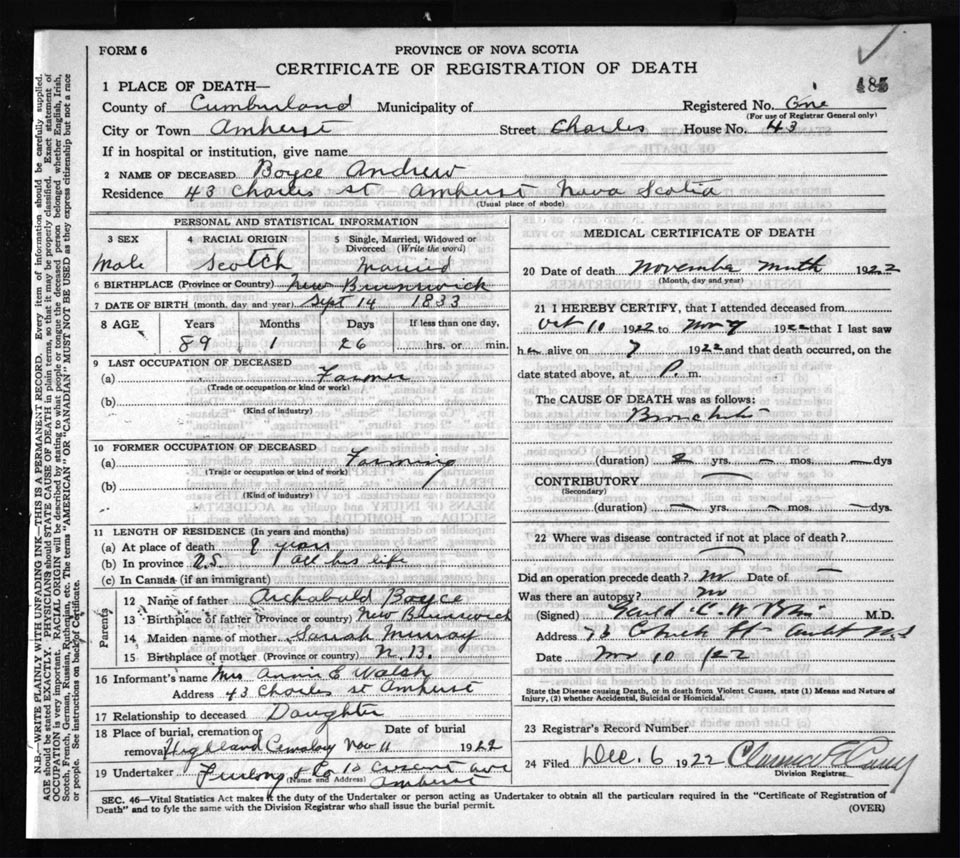 FORM 6
PROVINCE OF NOVA SCOTIA
CERTIFICATE OF REGISTRATION OF DEATH
1 PLACE OF DEATH— 485
County of Cumberland Municipality of Registered No. One
(For use of Registrar General only)
City or Town Amherst Street Charles House No. 43
If in hospital or institution, give name
2 NAME OF DECEASED Boyce Andrew
Residence 43 Charles st Amherst Nova Scotia
(Usual place of abode)
PERSONAL AND STATISTICAL INFORMATION
3 SEX 4 RACIAL ORIGIN 5 Single, Married, Widowed or
Divorced (Write the word)
Male Scotch Married
6 BIRTHPLACE (Province or Country) New Brunswick
7 DATE OF BIRTH (month, day and year) Sept 14 1833
8 AGE Years Months Days If less than one day,
89 1 26 hrs. or min.
9 LAST OCCUPATION OF DECEASED
(a) Farmer
(Trade or occupation or kind of work)
(b)
(Kind of industry)
10 FORMER OCCUPATION OF DECEASED
(a) Farming
(Trade or occupation or kind of work)
(b)
(Kind of industry)
11 LENGTH OF RESIDENCE (In years and months)
(a) At place of death 9 years
(b) In province N.S. all his life
(c) In Canada (if an immigrant)
Parents
12 Name of father Archabald Boyce
13 Birthplace of father (Province or country) New Brunswick
14 Maiden name of mother Sarah Murray
15 Birthplace of mother (Province or country) N.B.
16 Informant's name Mrs Annie E Walsh
Address 43 Charles st Amherst
17 Relationship to deceased Daughter
18 Place of burial, cremation or Date of burial
removal Highland Cemetery Nov 11 1922
19 Undertaker Furlong & Co 10 Cresent ave
(Name and Address) Amherst
MEDICAL CERTIFICATE OF DEATH
20 Date of death November 1922
(Month, day and year)
21 I HEREBY CERTIFY, that I attended deceased from
Oct 10 1922 to Nov 9 1922 that I last saw
h alive on 7 1922 and that death occurred, on the
date stated above, at P. m.
The CAUSE OF DEATH was as follows:
Bronchitis
(duration) 2 yrs. — mos. — dys
CONTRIBUTORY
(Secondary)
(duration) — yrs. — mos. — dys.
22 Where was disease contracted if not at place of death?
Did an operation precede death? no Date of —
Was there an autopsy? no
(Signed) C. W. M.D.
Address
Date Nov 10 /22
State the Disease causing Death, or in death from Violent Causes, state (1) Means and Nature of
Injury, (2) whether Accidental, Suicidal or Homicidal.
23 Registrar's Record Number
24 Filed Dec. 6 1922 Clarence
Division Registrar
SEC. 46—Vital Statistics Act makes it the duty of the Undertaker or person acting as Undertaker to obtain all the particulars required in the "Certificate of Registration of
Death" and to fyle the same with the Division Registrar who shall issue the burial permit. (OVER)
N.B.—WRITE PLAINLY WITH UNFADING INK—THIS IS A PERMANENT RECORD. Every item of information should be carefully supplied.
AGE should be stated EXACTLY. PHYSICIANS should STATE CAUSE OF DEATH in plain terms, so that it may be properly classified. Exact statement of
OCCUPATION is very important. RACIAL ORIGIN will be described by stating to what people or tongue the deceased person belonged whether English, Irish,
Scotch, French, German, Russian, Ruthenian, etc. The terms "AMERICAN" OR "CANADIAN" MUST NOT BE USED as they express citizenship but not a race
or people. See instructions on back of Certificate.